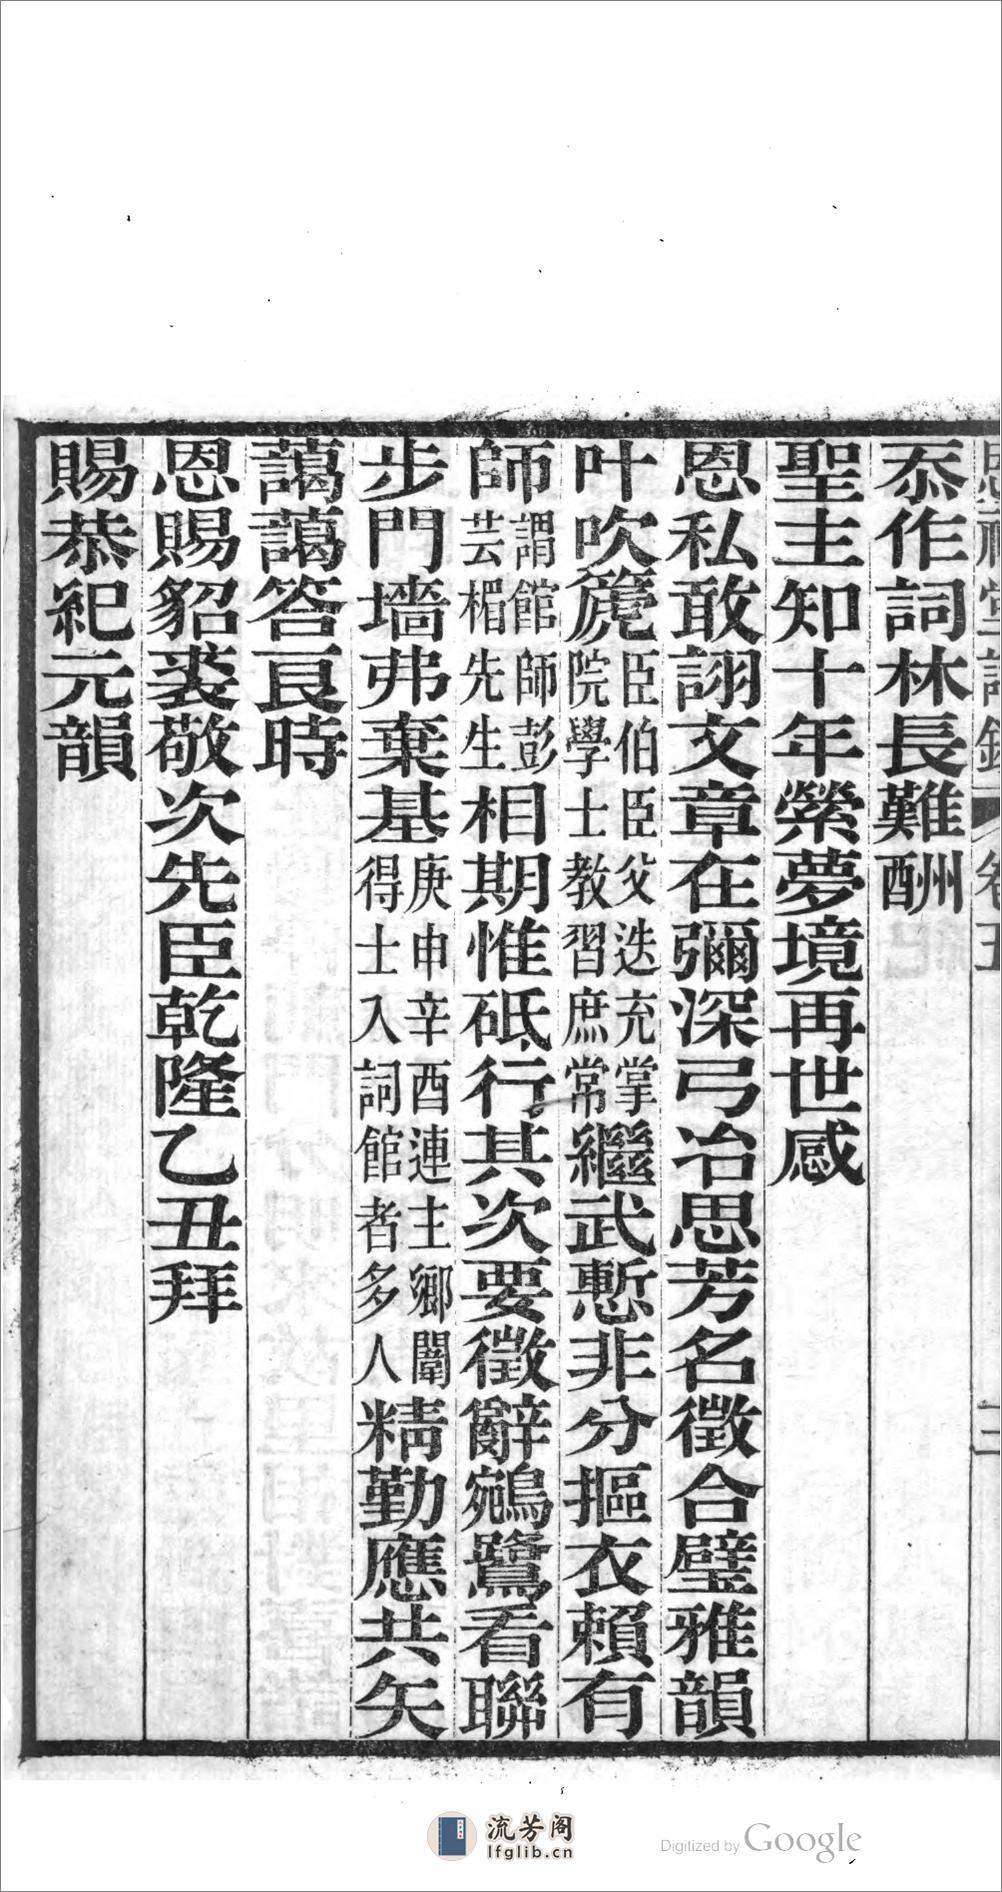 忝作詞林長難酬
聖主知十年縈夢境再世感
恩私敢詡文章在彌深弓冶思芳名徵合璧雅韻
叶吹篪臣伯臣父迭充掌院學士教習庶常繼武慙非分摳衣賴有
師謂館師彭芸楣先生相期惟砥行其次要徵辭鵷鷺看聯
步門墻弗棄基庚申辛酉連主鄉闈得士入詞館者多人精勤應共矢
藹藹答良時
恩賜貂裘敬次先臣乾隆乙丑拜
賜恭紀元韻
卷五
三
流芳阁
lfglib.cn
Digitized by Google